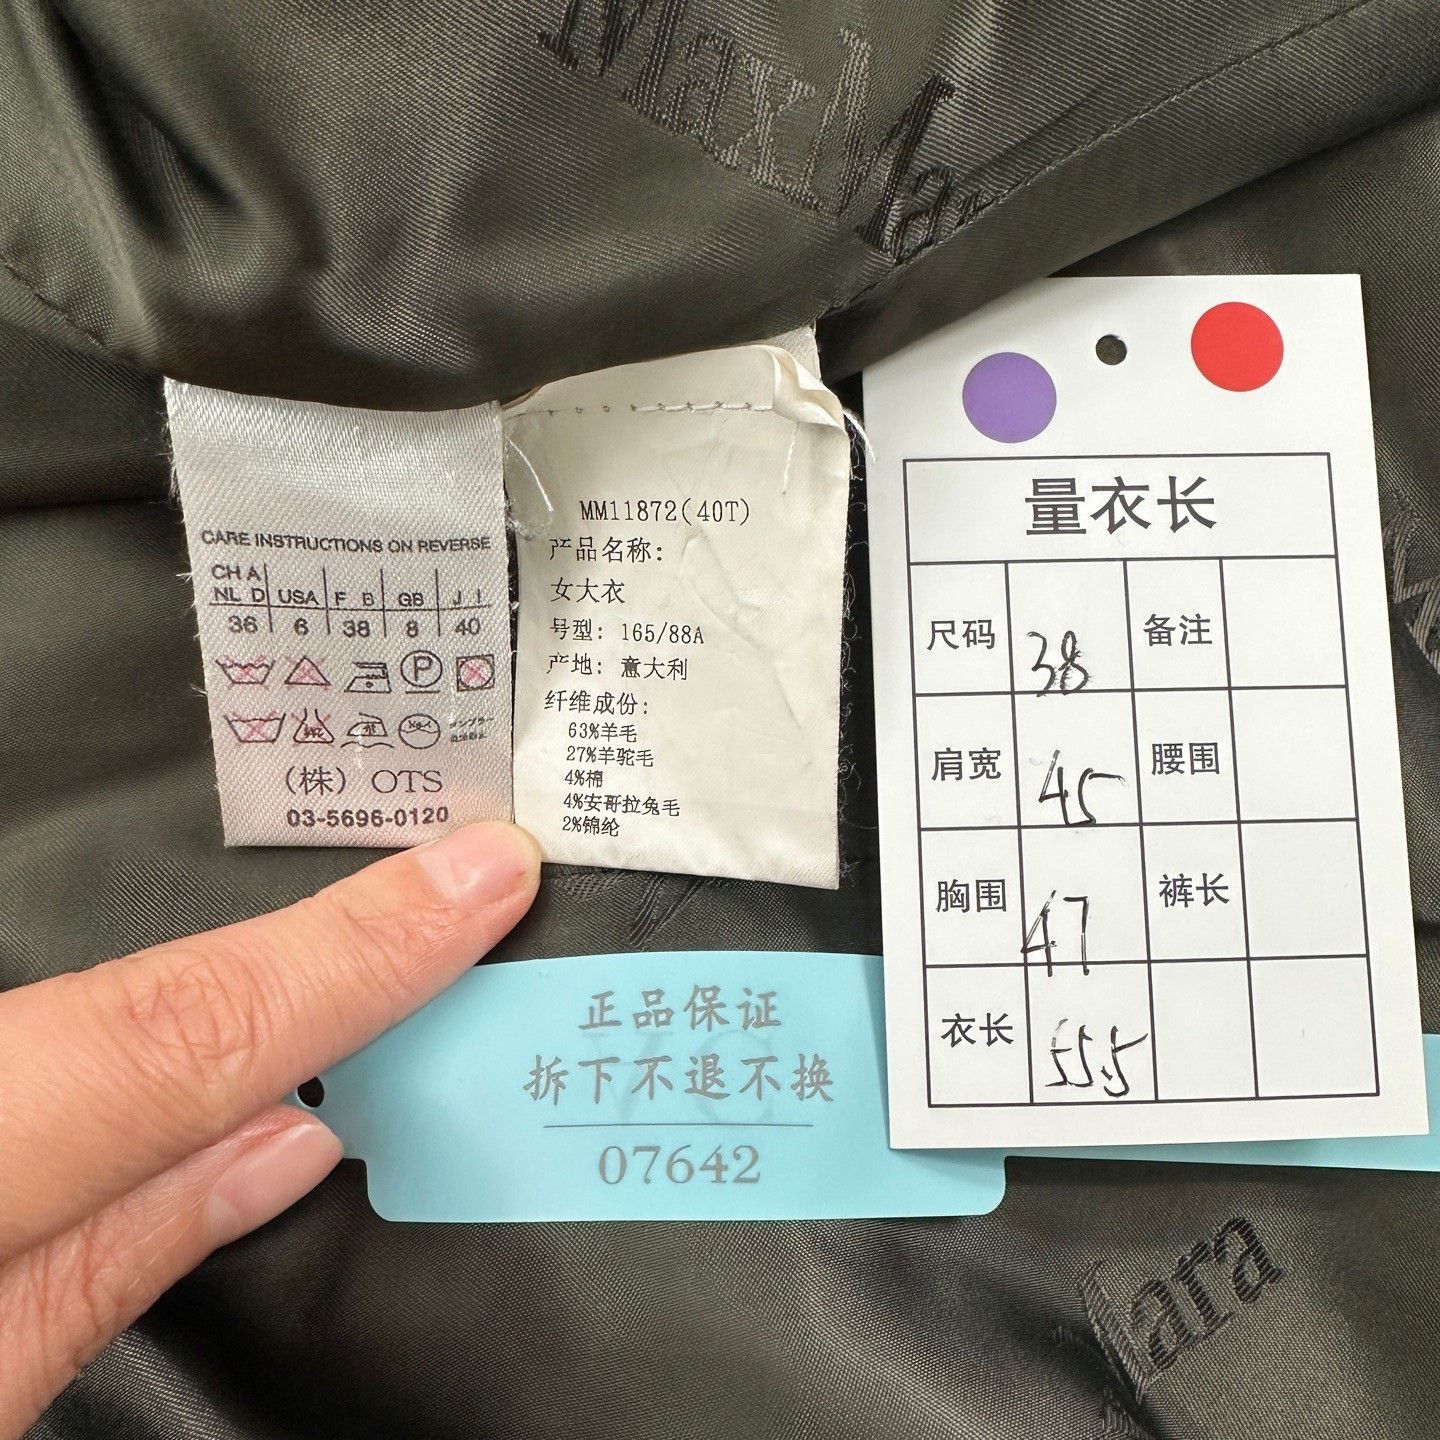 MaxMa
CARE INSTRUCTIONS ON REVERSE
CH A
NL D USA F B GB J I
36 6 38 8 40
(株) OTS
03-5696-0120
MM11872(40T)
产品名称:
女大衣
号型: 165/88A
产地: 意大利
纤维成份:
63%羊毛
27%羊驼毛
4%棉
4%安哥拉兔毛
2%锦纶
量衣长
尺码 38 备注
肩宽 45 腰围
胸围 47 裤长
衣长 55.5
正品保证
拆下不退不换
07642
Mara